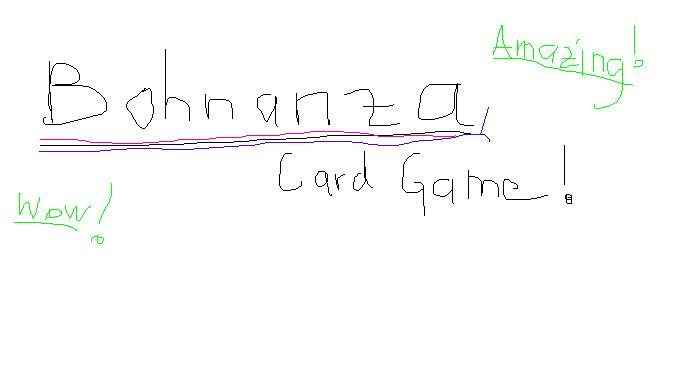 Amazing!
Bohnanza
Card Game!
Wow!